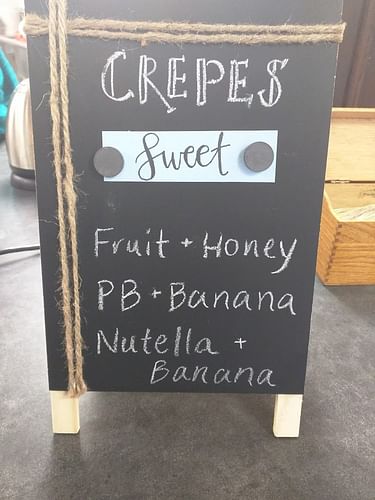 CREPES
Sweet
Fruit + Honey
PB + Banana
Nutella +
Banana